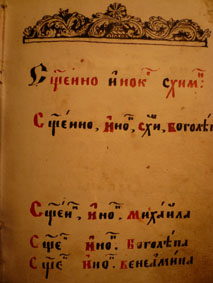 Сщ҃е́нно и҆нок̾ схим̾:
Сщ҃е́нно, и҆но̾, схи̾, Боголѣ́п̾
Сщ҃ен̾, и҆но̾. Михаи́ла
Сщ҃е̾ и҆но̾. Боголѣ́па
Сщ҃е̾ и҆но̾. Венеами́на